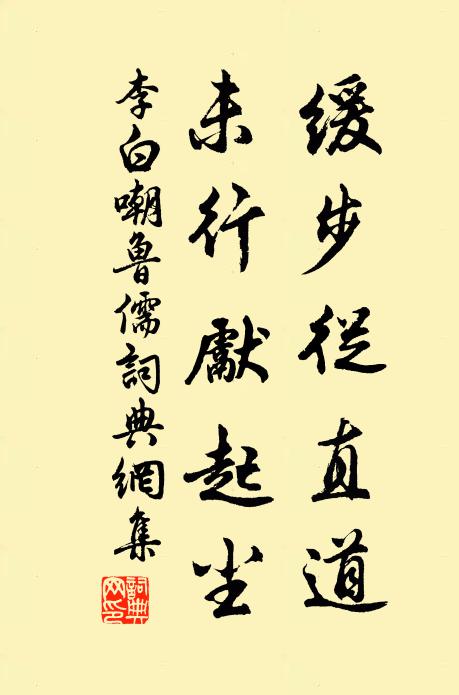 緩步從直道
未行獻起尘
李白嘲魯儒詞典網集
詞典
网印